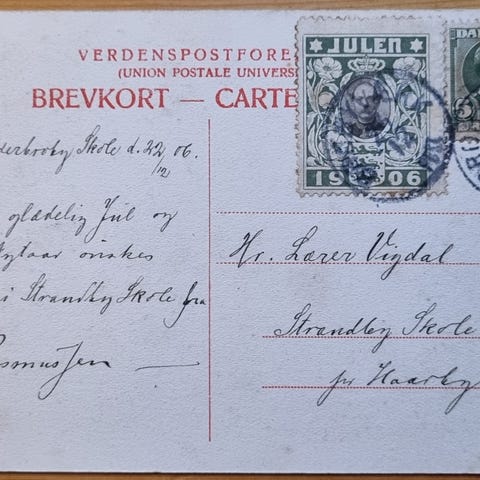 VERDENSPOSTFORE
(UNION POSTALE UNIVERS
BREVKORT — CARTE
JULEN
1906
DA
5
derbroby Skole d. 22/12 06.
glædelig Jul og
Nytaar ønskes
i Strandby Skole fra
smussen
Hr. Lærer Vigdal
Strandby Skole
pr Haarby